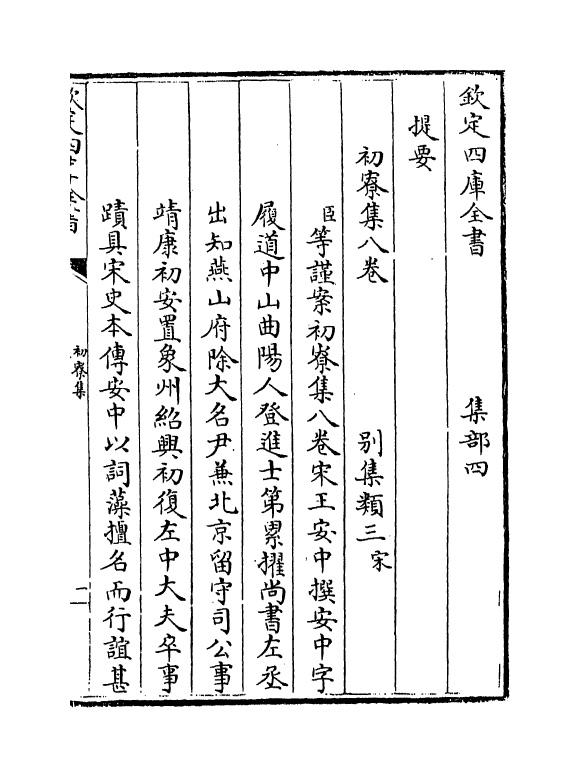 欽定四庫全書　集部四
提要
初寮集八卷　别集類三宋
臣等謹案初寮集八卷宋王安中撰安中字
履道中山曲陽人登進士第累擢尚書左丞
出知燕山府除大名尹兼北京留守司公事
靖康初安置象州紹興初復左中大夫卒事
蹟具宋史本傳安中以詞藻擅名而行誼甚
欽定四庫全書
初寮集